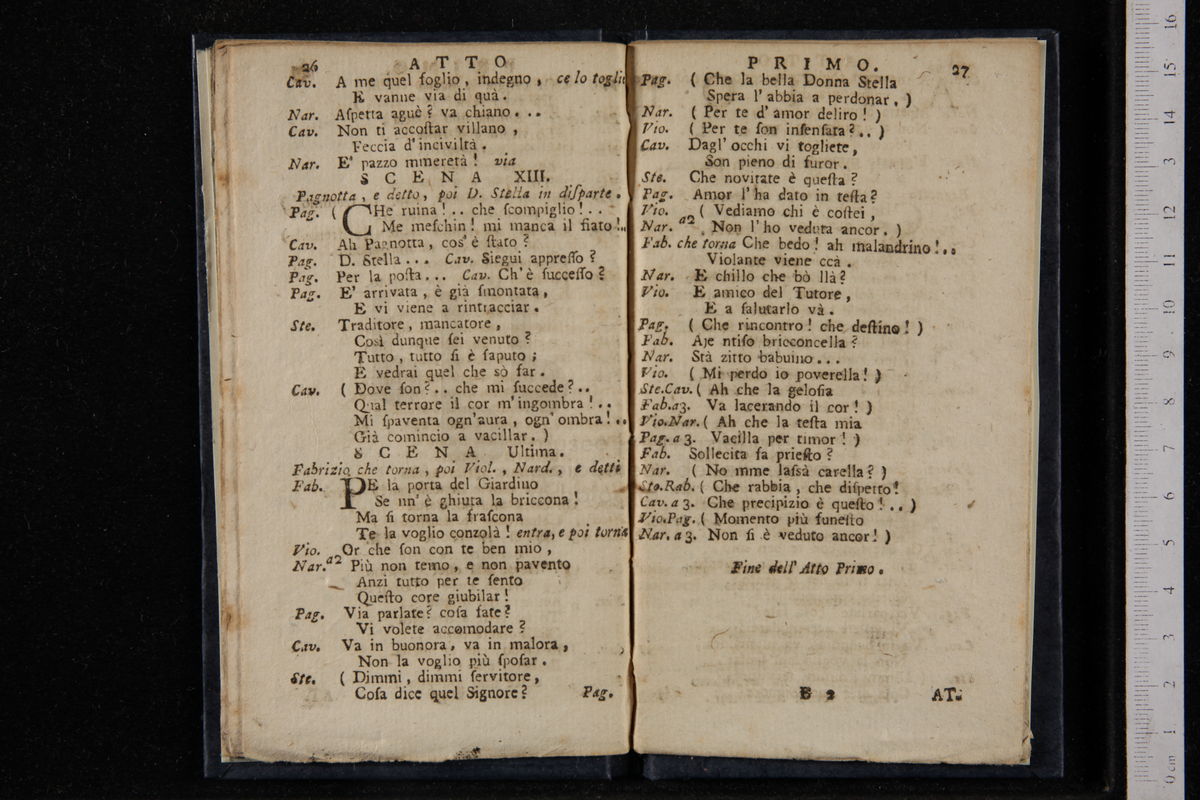 26 ATTO
Cav. A me quel foglio, indegno, ce lo toglie
E vanne via di quà.
Nar. Aſpetta aguè? va chiano...
Cav. Non ti accoſtar villano,
Feccia d'inciviltà.
Nar. E' pazzo mmeretà! via
SCENA XIII.
Pagnotta, e detto, poi D. Stella in diſparte.
Pag. (CHe ruina!.. che ſcompiglio!...
Me meſchin! mi manca il fiato!..
Cav. Ah Pagnotta, cos'è ſtato?
Pag. D. Stella... Cav. Siegui appreſſo?
Pag. Per la poſta... Cav. Ch'è ſucceſſo?
Pag. E' arrivata, è già ſmontata,
E vi viene a rintracciar.
Ste. Traditore, mancatore,
Così dunque ſei venuto?
Tutto, tutto ſi è ſaputo;
E vedrai quel che sò far.
Cav. (Dove ſon?.. che mi ſuccede?..
Qual terrore il cor m'ingombra!..
Mi ſpaventa ogn'aura, ogn'ombra!..
Già comincio a vacillar.)
SCENA Ultima.
Fabrizio che torna, poi Viol., Nard., e detti
Fab. PE la porta del Giardino
Se nn'è ghiuta la briccona!
Ma ſi torna la fraſcona
Te la voglio conzolà! entra, e poi torna
Vio. Or che ſon con te ben mio,
Nar. a2 Più non temo, e non pavento
Anzi tutto per te ſento
Queſto core giubilar!
Pag. Via parlate? coſa fate?
Vi volete accomodare?
Cav. Va in buonora, va in malora,
Non la voglio più ſpoſar.
Ste. (Dimmi, dimmi ſervitore,
Coſa dice quel Signore? Pag.
PRIMO. 27
Pag. (Che la bella Donna Stella
Spera l'abbia a perdonar.)
Nar. (Per te d'amor deliro!)
Vio. (Per te ſon inſenſata?..)
Cav. Dagl'occhi vi togliete,
Son pieno di furor.
Ste. Che novitate è queſta?
Pag. Amor l'ha dato in teſta?
Vio. (Vediamo chi è coſtei,
Nar. a2 Non l'ho veduta ancor.)
Fab. che torna Che bedo! ah malandrino!..
Violante viene ccà.
Nar. E chillo che bò llà?
Vio. E amico del Tutore,
E a ſalutarlo và.
Pag. (Che rincontro! che deſtino!)
Fab. Aje ntiſo bricconcella?
Nar. Stà zitto babuino...
Vio. (Mi perdo io poverella!)
Ste.Cav. (Ah che la geloſia
Fab. a3. Va lacerando il cor!)
Vio.Nar. (Ah che la teſta mia
Pag. a 3. Vacilla per timor!)
Fab. Sollecita fa prieſto?
Nar. (No mme laſsà carella?)
Ste.Fab. (Che rabbia, che diſpetto!
Cav. a 3. Che precipizio è queſto!..)
Vio.Pag. (Momento più funeſto
Nar. a 3. Non ſi è veduto ancor!)
Fine dell'Atto Primo.
E 2 AT-